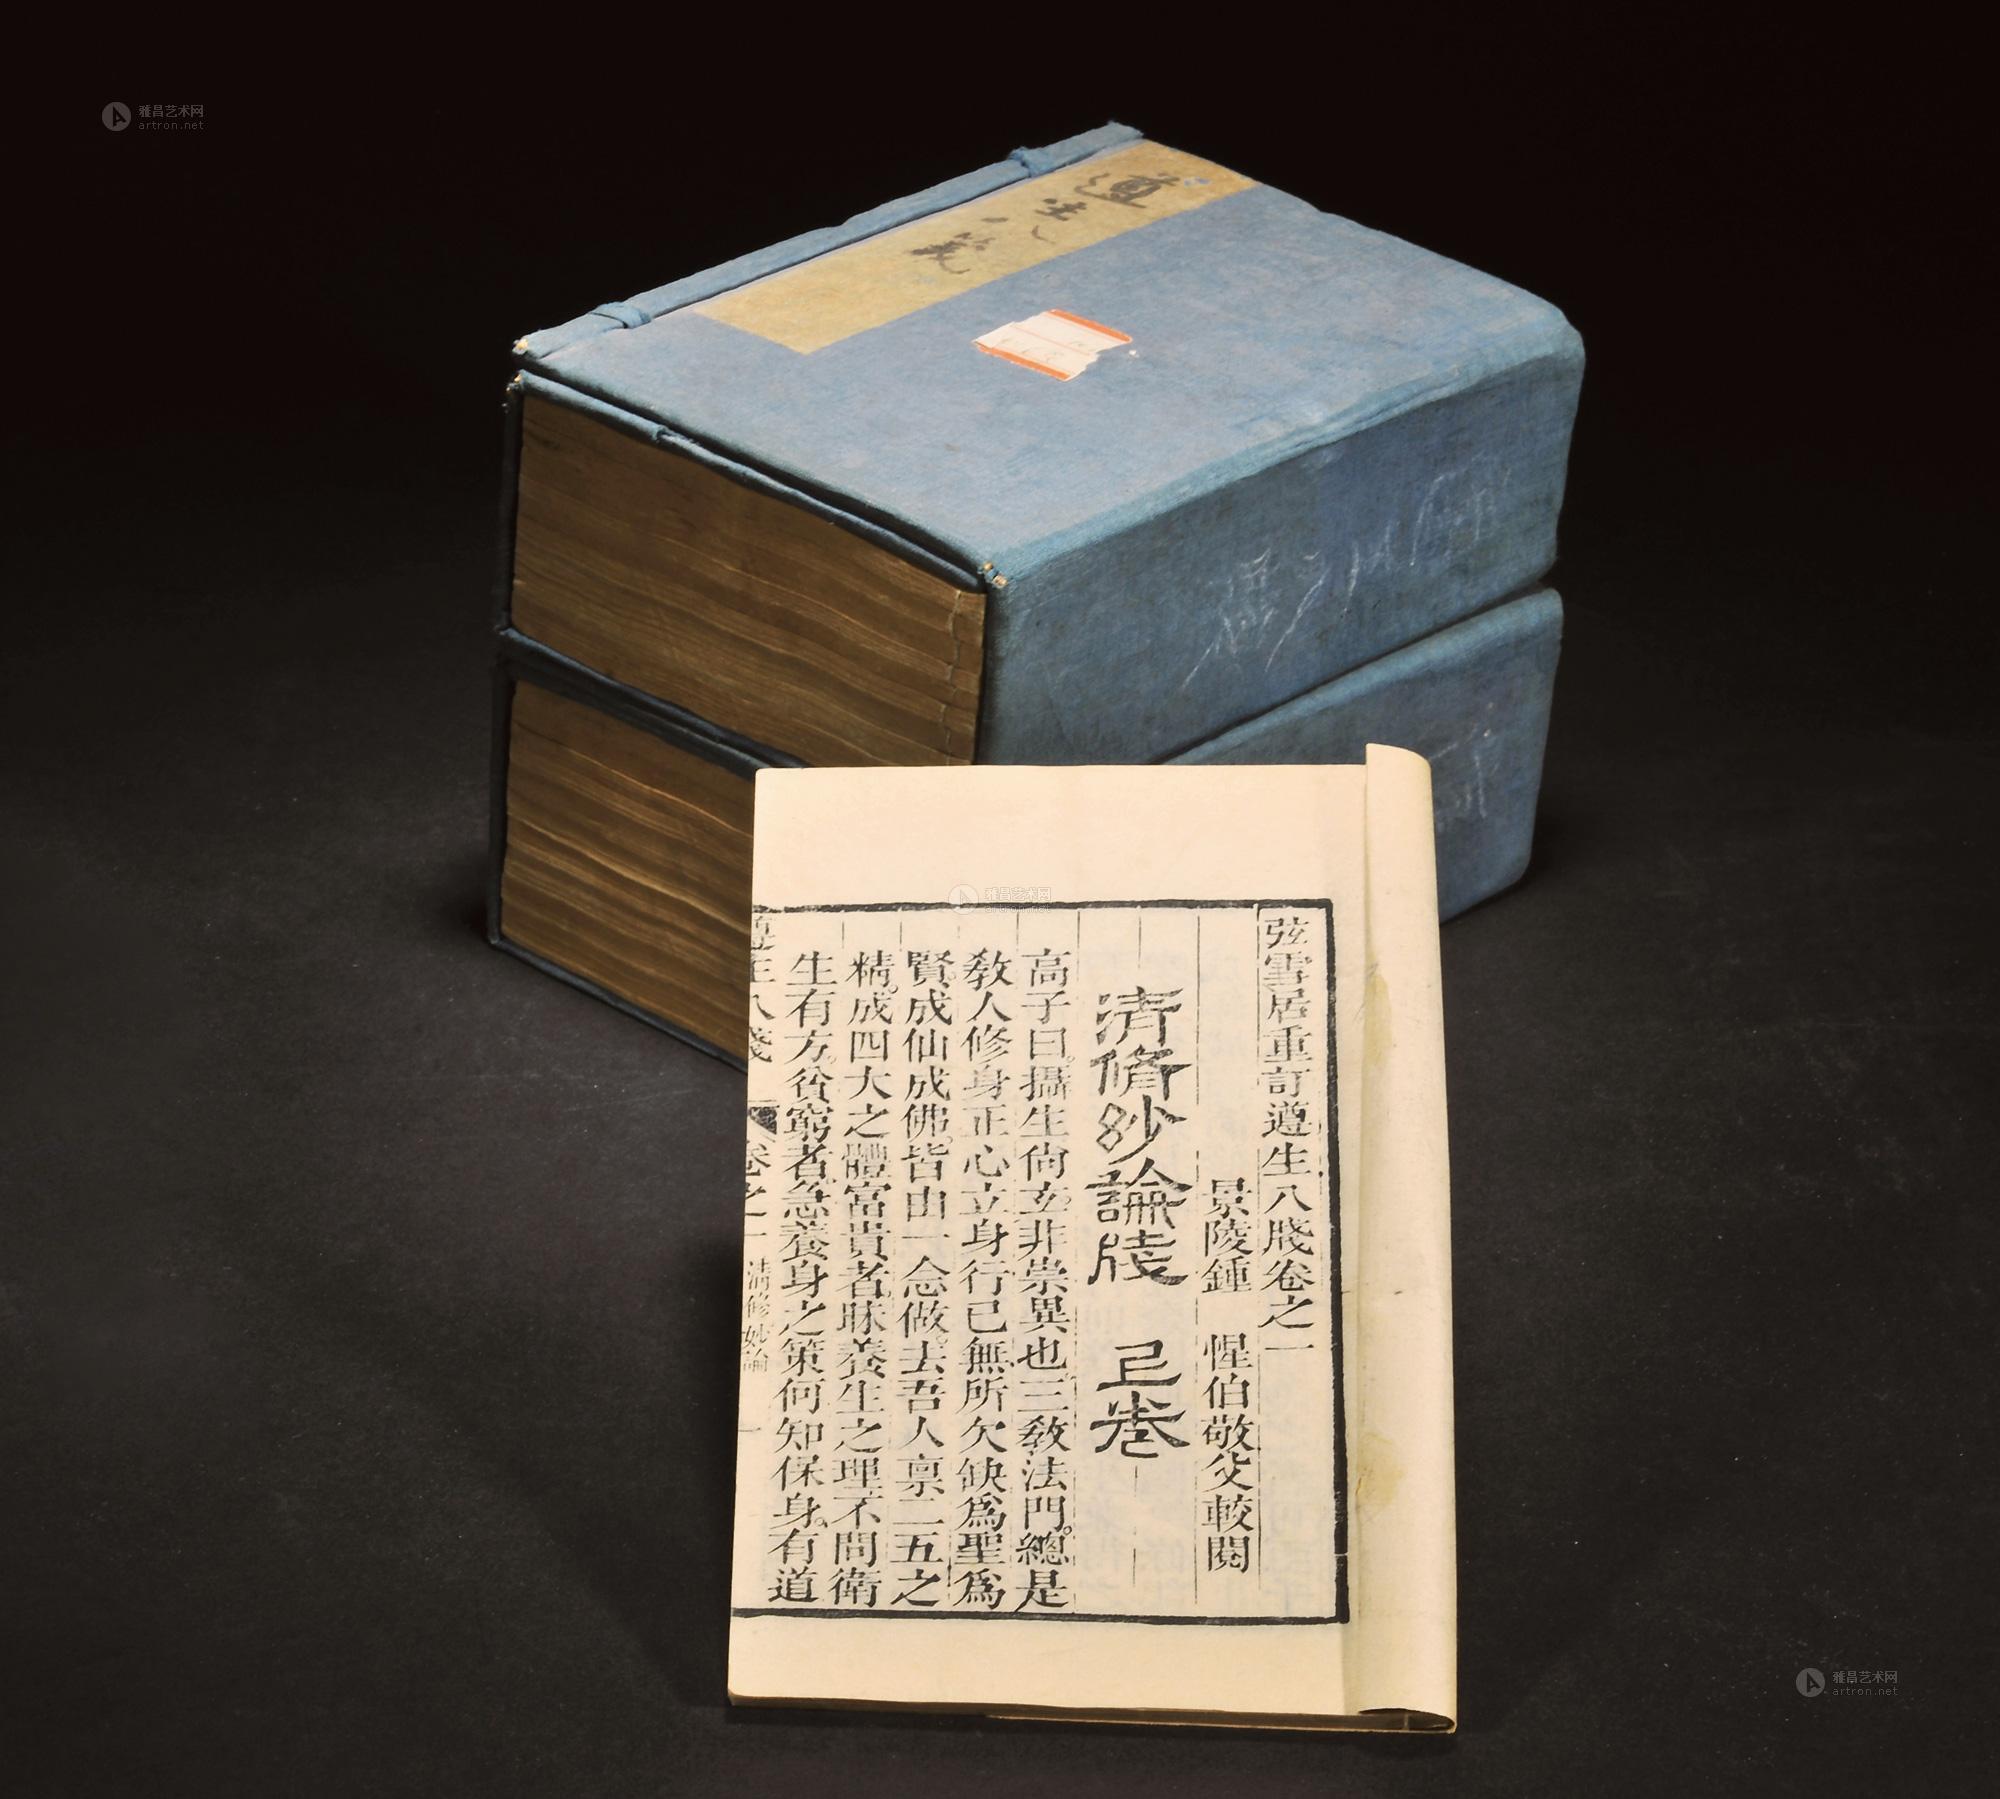 雅昌艺术网
artron.net
遵生八箋
雅昌艺术网
artron.net
弦雪居重訂遵生八牋卷之一
景陵鍾 惺伯敬父較閱
清脩妙論牋 上卷
高子曰。攝生尚玄。非崇異也。三敎法門。總是
敎人修身正心立身行已無所欠缺爲聖爲
賢。成仙成佛。皆由一念做。去吾人禀二五之
精。成四大之體。富貴者。昧養生之理。不問衛
生有方。貧窮者。急養身之策何知保身。有道
遵生八牋 卷之一 清修妙論 一
雅昌艺术网
artron.net